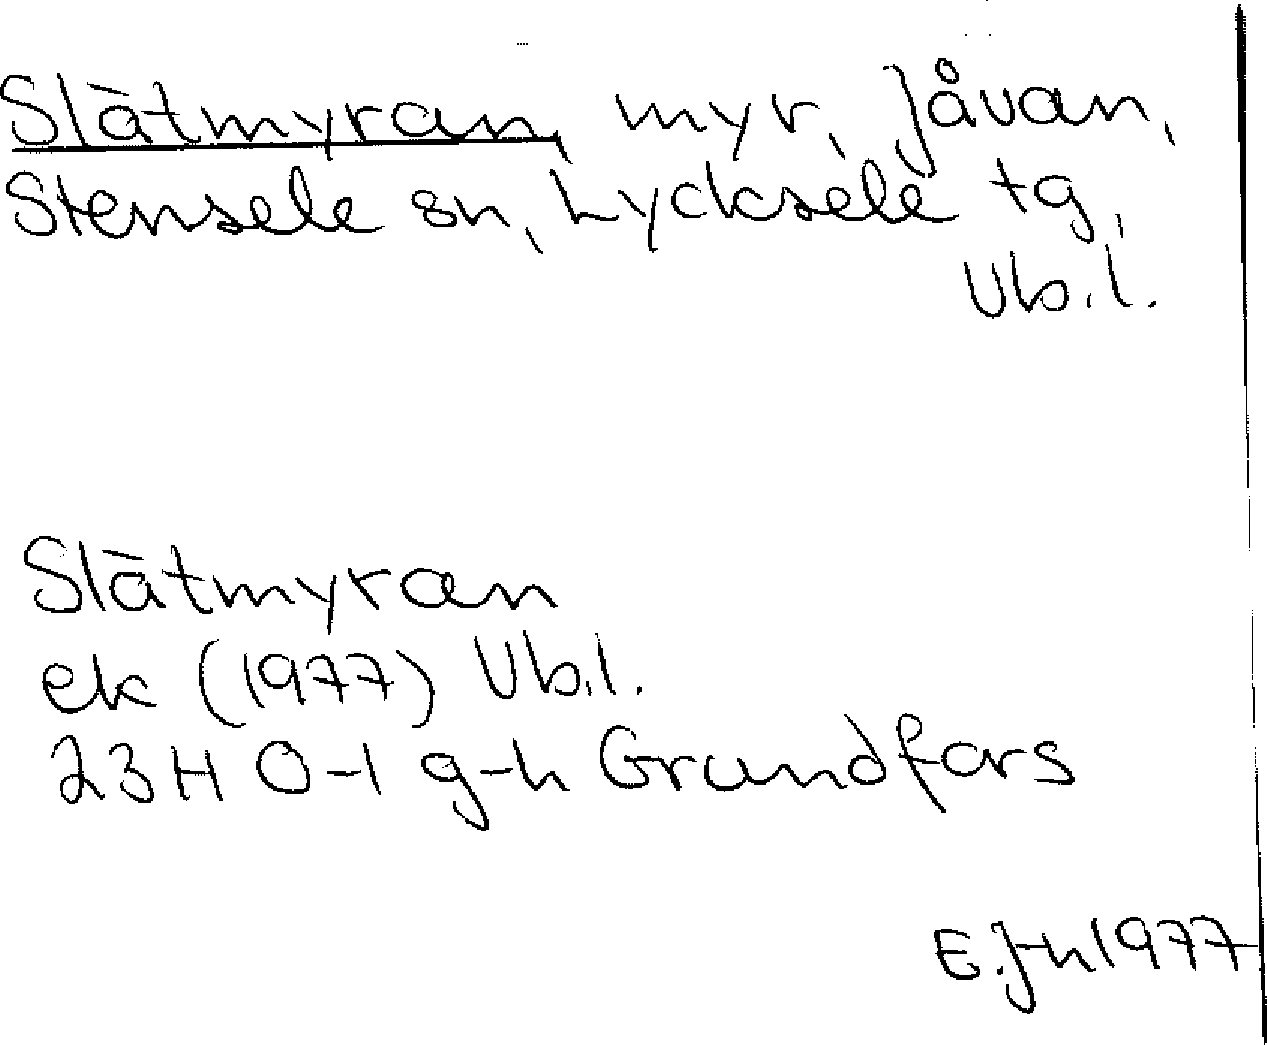 Slåtmyran, myr, Jåvan,
Stensele sn, Lycksele tg,
Vb.l.
Slåtmyran
ek (1977) Vb.l.
23H 0-1 g-h Grundfors
E.J-n 1977